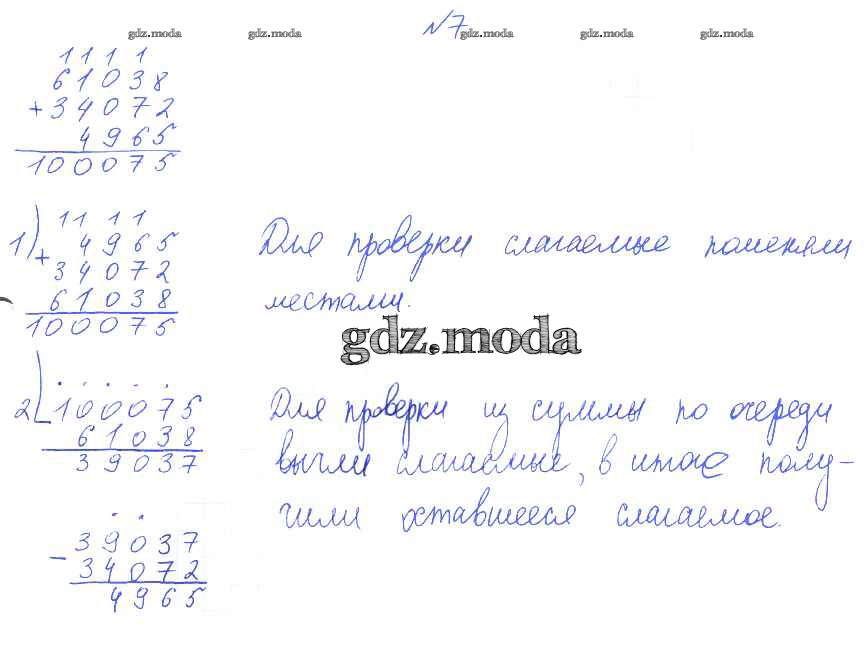 №7
gdz.moda gdz.moda gdz.moda gdz.moda gdz.moda
1 1 1 1
61038
+ 34072
4965
100075
1) 1 1 1 1
+ 4965
34072
61038
100075
Для проверки слагаемые поменяли
местами.
gdz.moda
2) . . . . .
- 100075
61038
39037
Для проверки из суммы по очереди
вычли слагаемые, в итоге полу-
чили оставшееся слагаемое.
. .
- 39037
34072
4965